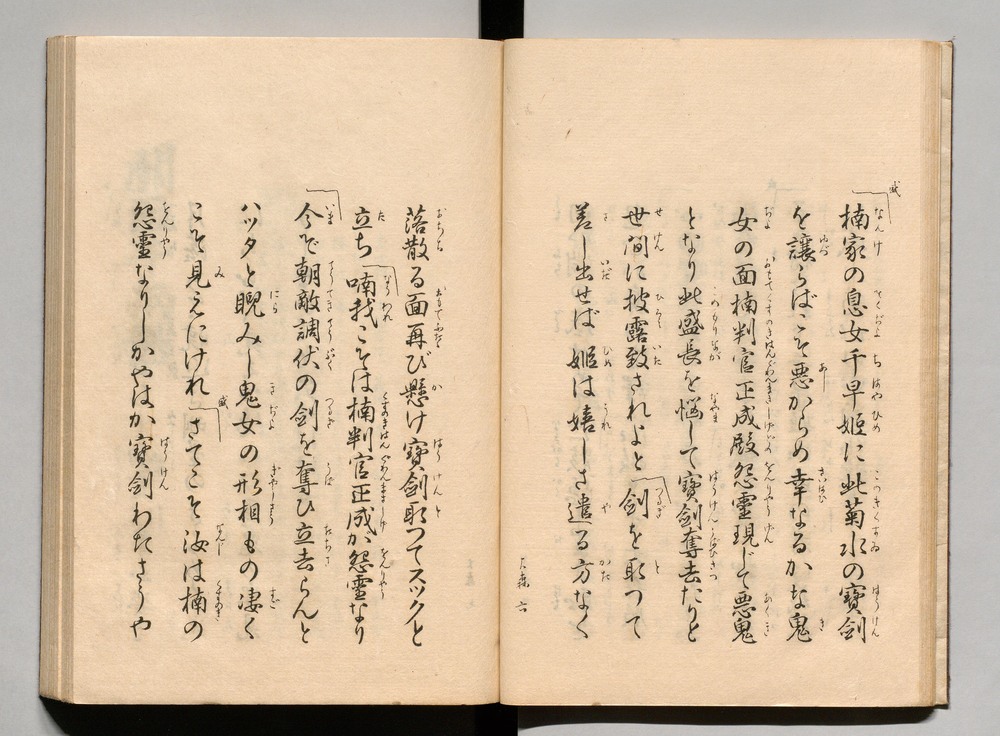 楠家の息女千早姫に此菊水の寶劍
を讓らばこそ悪からめ幸なるかな鬼
女の面楠判官正成殿怨霊現じて悪鬼
となり此盛長を悩して寶劍奪去たりと
世間に披露致されよと 劍を取つて
差し出せば 姫は嬉しさ遣る方なく
大森 六
落散る面再び懸け寶劍取つてスックと
立ち 喃我こそは楠判官正成が怨霊なり
今ぞ朝敵調伏の劍を奪ひ立去らんと
ハッタと睨みし鬼女の形相もの凄く
こそ見えにけれ さてこそ汝は楠の
怨霊なりしかやはか寶劍わたさうや